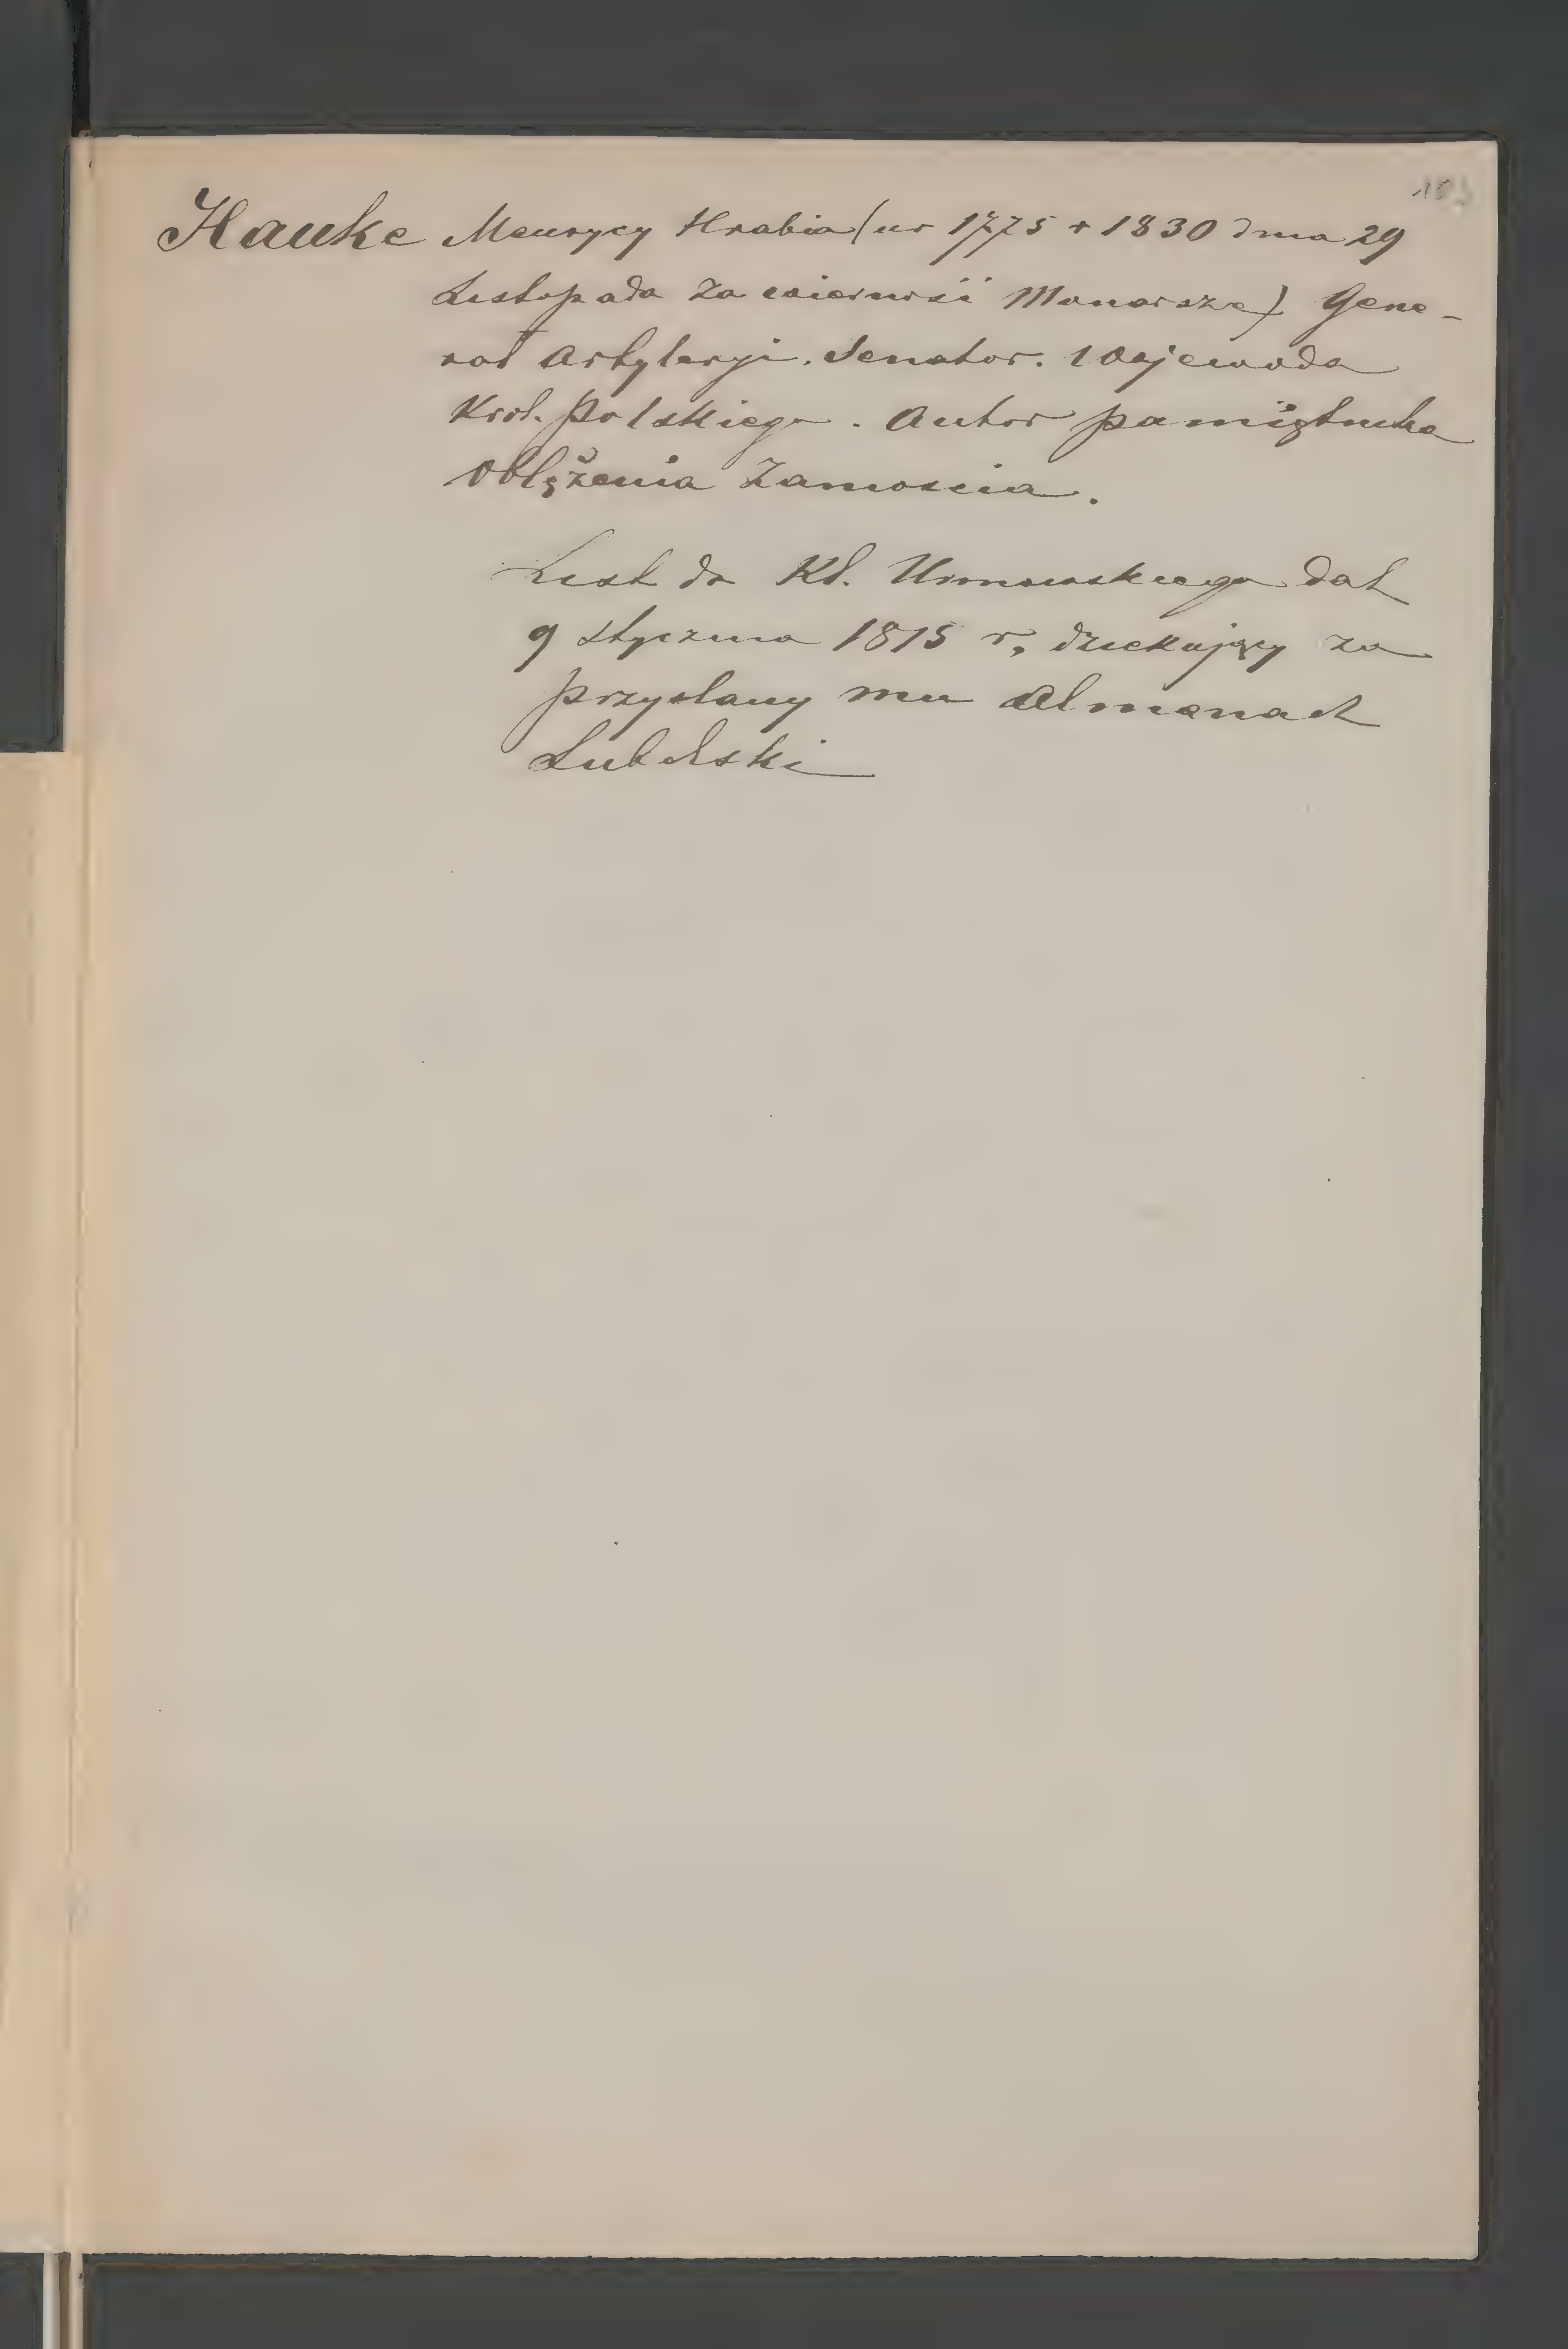 Hauke Maurycy Hrabia (ur 1775 + 1830 dnia 29
Listopada za wierność Monarsze) Gene-
rał Artyleryi. Senator. Wojewoda
Król. Polskiego. Autor pamiętnika
Oblężenia Zamościa.
List do Kl. Urmowskiego dat
9 stycznia 1815 r, dziekujący za
przysłany mu Almanach
Lubelski